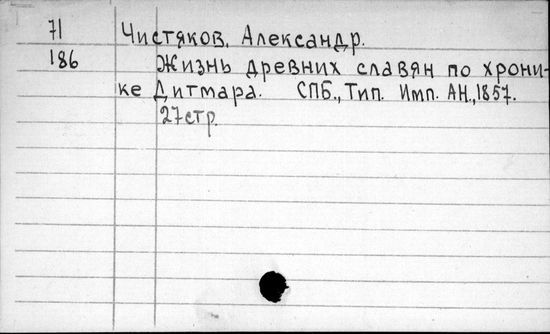 71 Чистяков, Александр.
186 Жизнь древних славян по хрони-
ке Дитмара. СПБ., Тип. Имп. АН., 1857.
27стр.